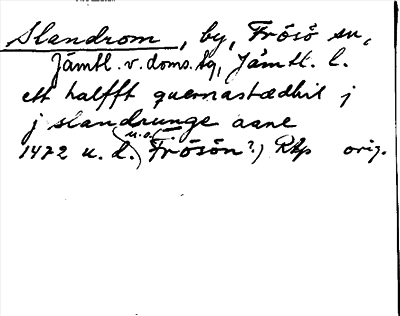 Slandrom, by, Frösö sn,
Jämtl. v. doms. tg, Jämtl. l.
ett halfft quernastædhil j
j slandrunge aane
(u.o.)
1472 u. d. (Frösön?) Rap orig.